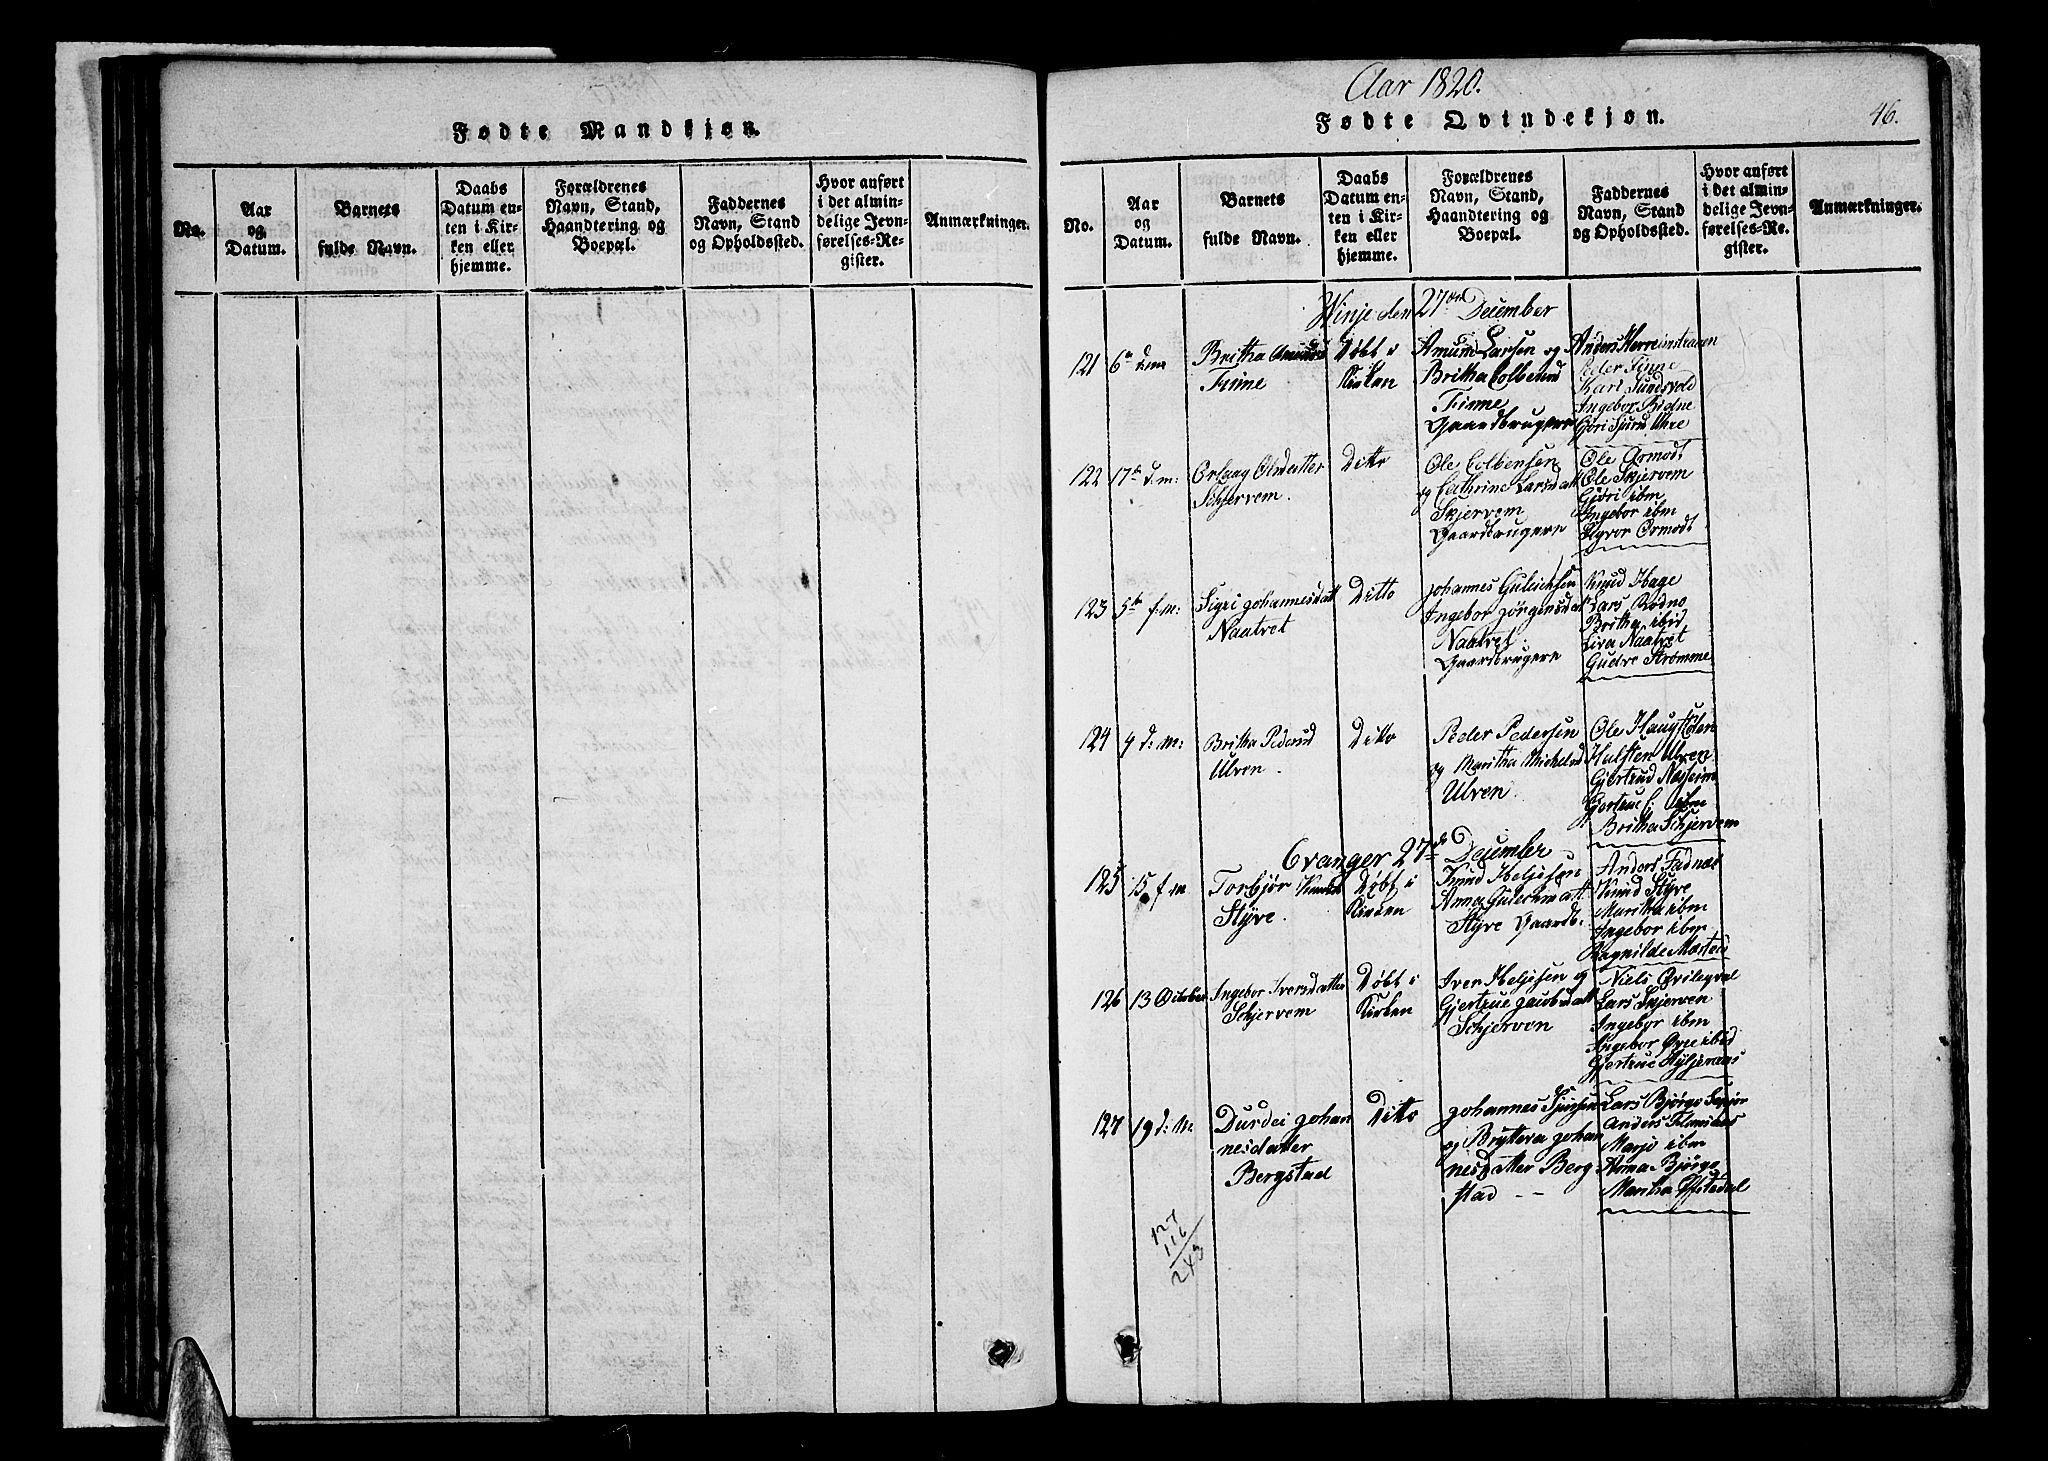 Fødte Mandkjøn.
No.
Aar
og
Datum.
Barnets
fulde Navn.
Daabs
Datum en-
ten i Kir-
ken eller
hjemme.
Forældrenes
Navn, Stand,
Haandtering og
Boepæl.
Faddernes
Navn, Stand
og Opholdssted.
Hvor anført
i det almin-
delige Jevn-
førelses-Re-
gister.
Anmærkninger.
Aar 1820.
Fødte Qvindekjøn.
46.
No.
Aar
og
Datum.
Barnets
fulde Navn.
Daabs
Datum en-
ten i Kir-
ken eller
hjemme.
Forældrenes
Navn, Stand,
Haandtering og
Boepæl.
Faddernes
Navn, Stand
og Opholdssted.
Hvor anført
i det almin-
delige Jevn-
førelses-Re-
gister.
Anmærkninger.
Winje den 27de December
121
6te d.m.
Britha
Finne
Døbt i
Kirken
Amund Larsen og
Britha Colbensd
Finne
Gaardbrugere
Anders
Peder Finne
Kari Sundsvold
Ingebor Bidne
Gori Sjurd Uhre
122
17de d.m:
Orlaug Olsdatter
Schjervem.
Ditto
Ole Colbensen
og Cathrine Larsdatt
Skjervem
Gaardbrugere
Ole Ormodt
Ole Skjervem
Gjøri ibm
Ingebor ibm
Sygvor Ormodt
123
5te f.m:
Sigri Johannesdatt
Naatvet
Ditto
Johannes Guleichsen
Ingebor Jørgensdatt
Naatvet.
Gaardbrugere
Knud Hage
Lars Rødne
Britha ibid
Siva Naatvet
Gudve Strømme
124
4 d: m:
Britha Pedersd
Ulven.
Ditto
Peder Pedersen
og Maritha Michelsd
Ulven.
Ole Haugstølen
Halsten Ulven
Gjertrud Næsheim
Gjertrue ibm
Britha Schjervem
Evanger 27de December
125
15 f m
Torbjør Knudsd
Styve.
Døbt i
Kirken
Knud Heljesen
Anna Guleichsdatt
Styve Gaardb:
Anders Fadnæs
Knud Styve
Maritha ibm
Ingebor ibm
Ragnilde Mæstad
126
13 October
Ingebor Iversdatter
Schjervem
Døbt i
Kirken
Iver Heljesen og
Gjertrue Jacobsdatt
Schjerven
Niels Qvilegval
Lars Skjerven
Ingebor ibm
Ingebor Øvre ibid
Gjertrue
127
19 d: M
Durdei Johan
nesdatter
Bergstad
Ditto
Johannes Sjursen
og Bryteva Johan
nesdatter Berg
stad - -
Lars Bjørgo
Anders
Marjo ibm
Anna Bjørgo
Maritha
127
116
243